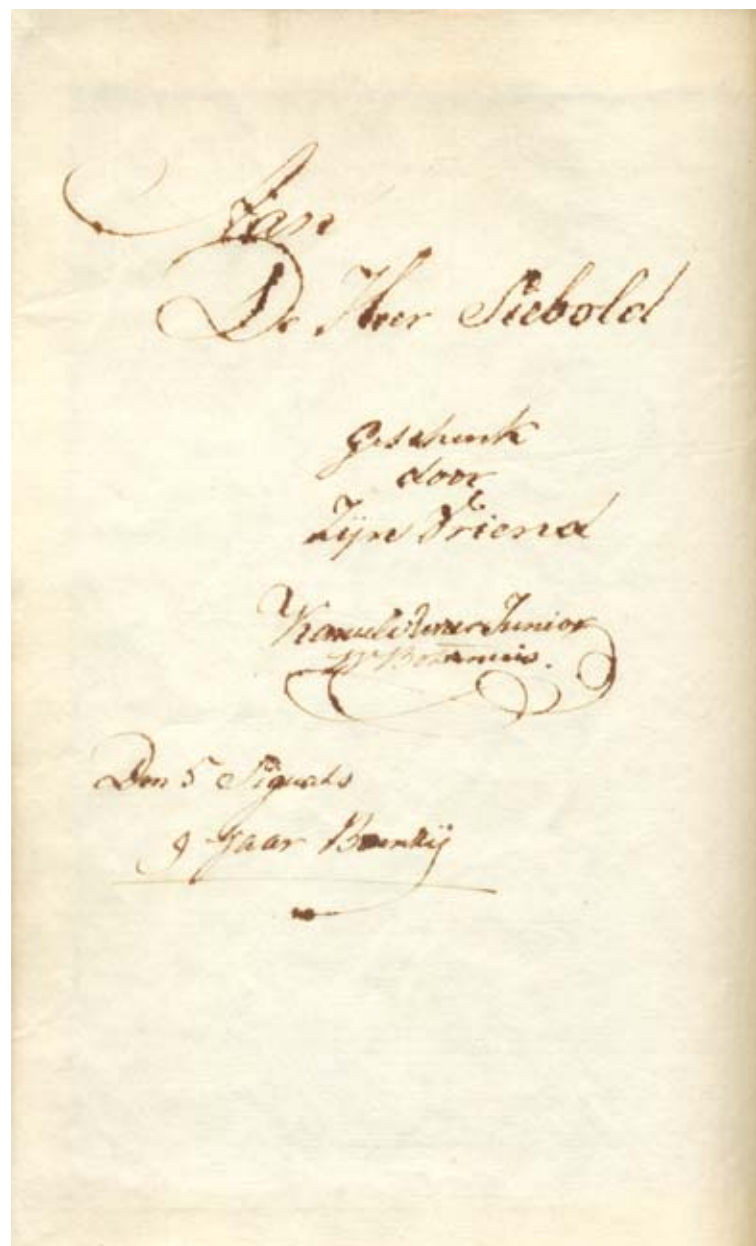 Aan
De Heer Siebold
geschenk
door
Zijne Vriend
Junior
Den 5 Siguats
9 Jaar Boenkij